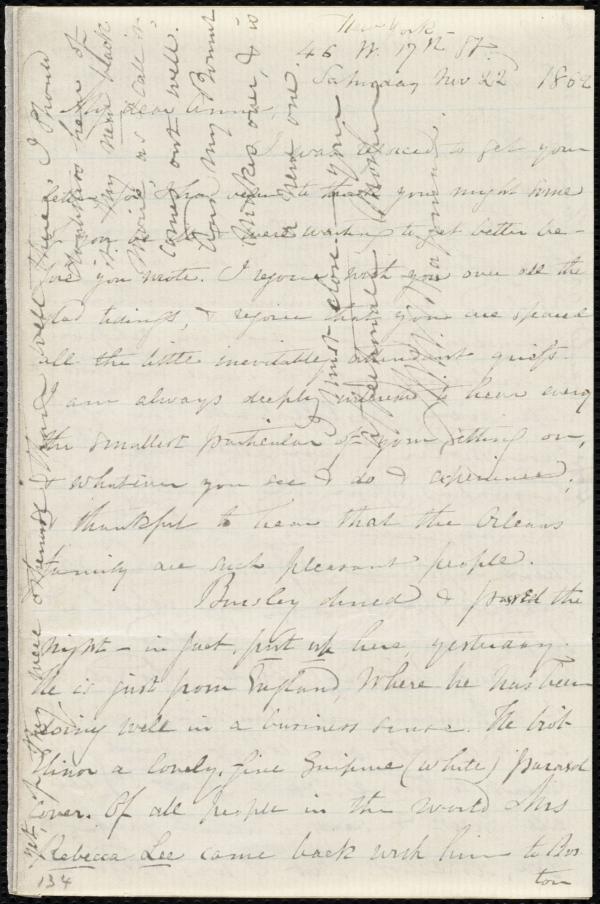 New York
46 W. 17th St.
Saturday Nov 22 1862
My dear Anne,
I was rejoiced to get your
letter, for I had begun to think you might time
for you were waiting to get better be-
fore you wrote. I rejoice with you over all the
glad tidings, & rejoice that you are spared
all the little inevitable attendant griefs.
I am always deeply interested to hear every
the smallest particular of your getting on,
& whatever you see & do & experience;
& thankful to hear that the Orleans
family are such pleasant people.
Bursley dined & passed the
night - in fact, put up here, yesterday.
He is just from England, where he has been
doing well in a business sense. He brot
Elinor a lovely, fine Guipure (white) parasol
cover. Of all people in the world Mrs
Rebecca Lee came back with him to Bos
ton
134
not, if they were otherwise. Well, I should
somehow hear of
it. My new black
as I call it
comes out well.
And my Bonnet
makes over, & is
a new one.
I must close. your
affectionate